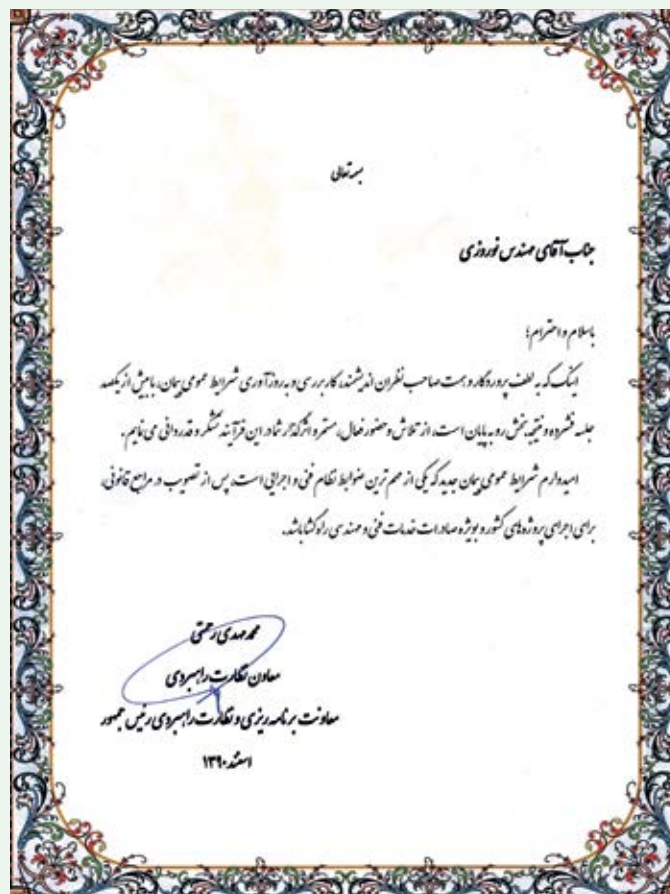 بسمه تعالی
جناب آقای مهندس نوروزی
باسلام و احترام؛
اینک که به لطف پروردگار و همت صاحب نظران اندیشمند، کار بررسی و به روزآوری شرایط عمومی پیمان، با بیش از یکصد
جلسه فشرده و نتیجه بخش رو به پایان است، از تلاش و حضور فعال، مستمر و اثرگذار شما در این فرآیند تشکر و قدردانی می نمایم.
امیدوارم شرایط عمومی پیمان جدید که یکی از مهم ترین ضوابط نظام فنی و اجرایی است، پس از تصویب در مراجع قانونی،
برای اجرای پروژه های کشور و بویژه صادرات خدمات فنی و مهندسی راه گشا باشد.
محمد مهدی رحمتی
معاون نظارت راهبردی
معاونت برنامه ریزی و نظارت راهبردی رئیس جمهور
اسفند ۱۳۹۰